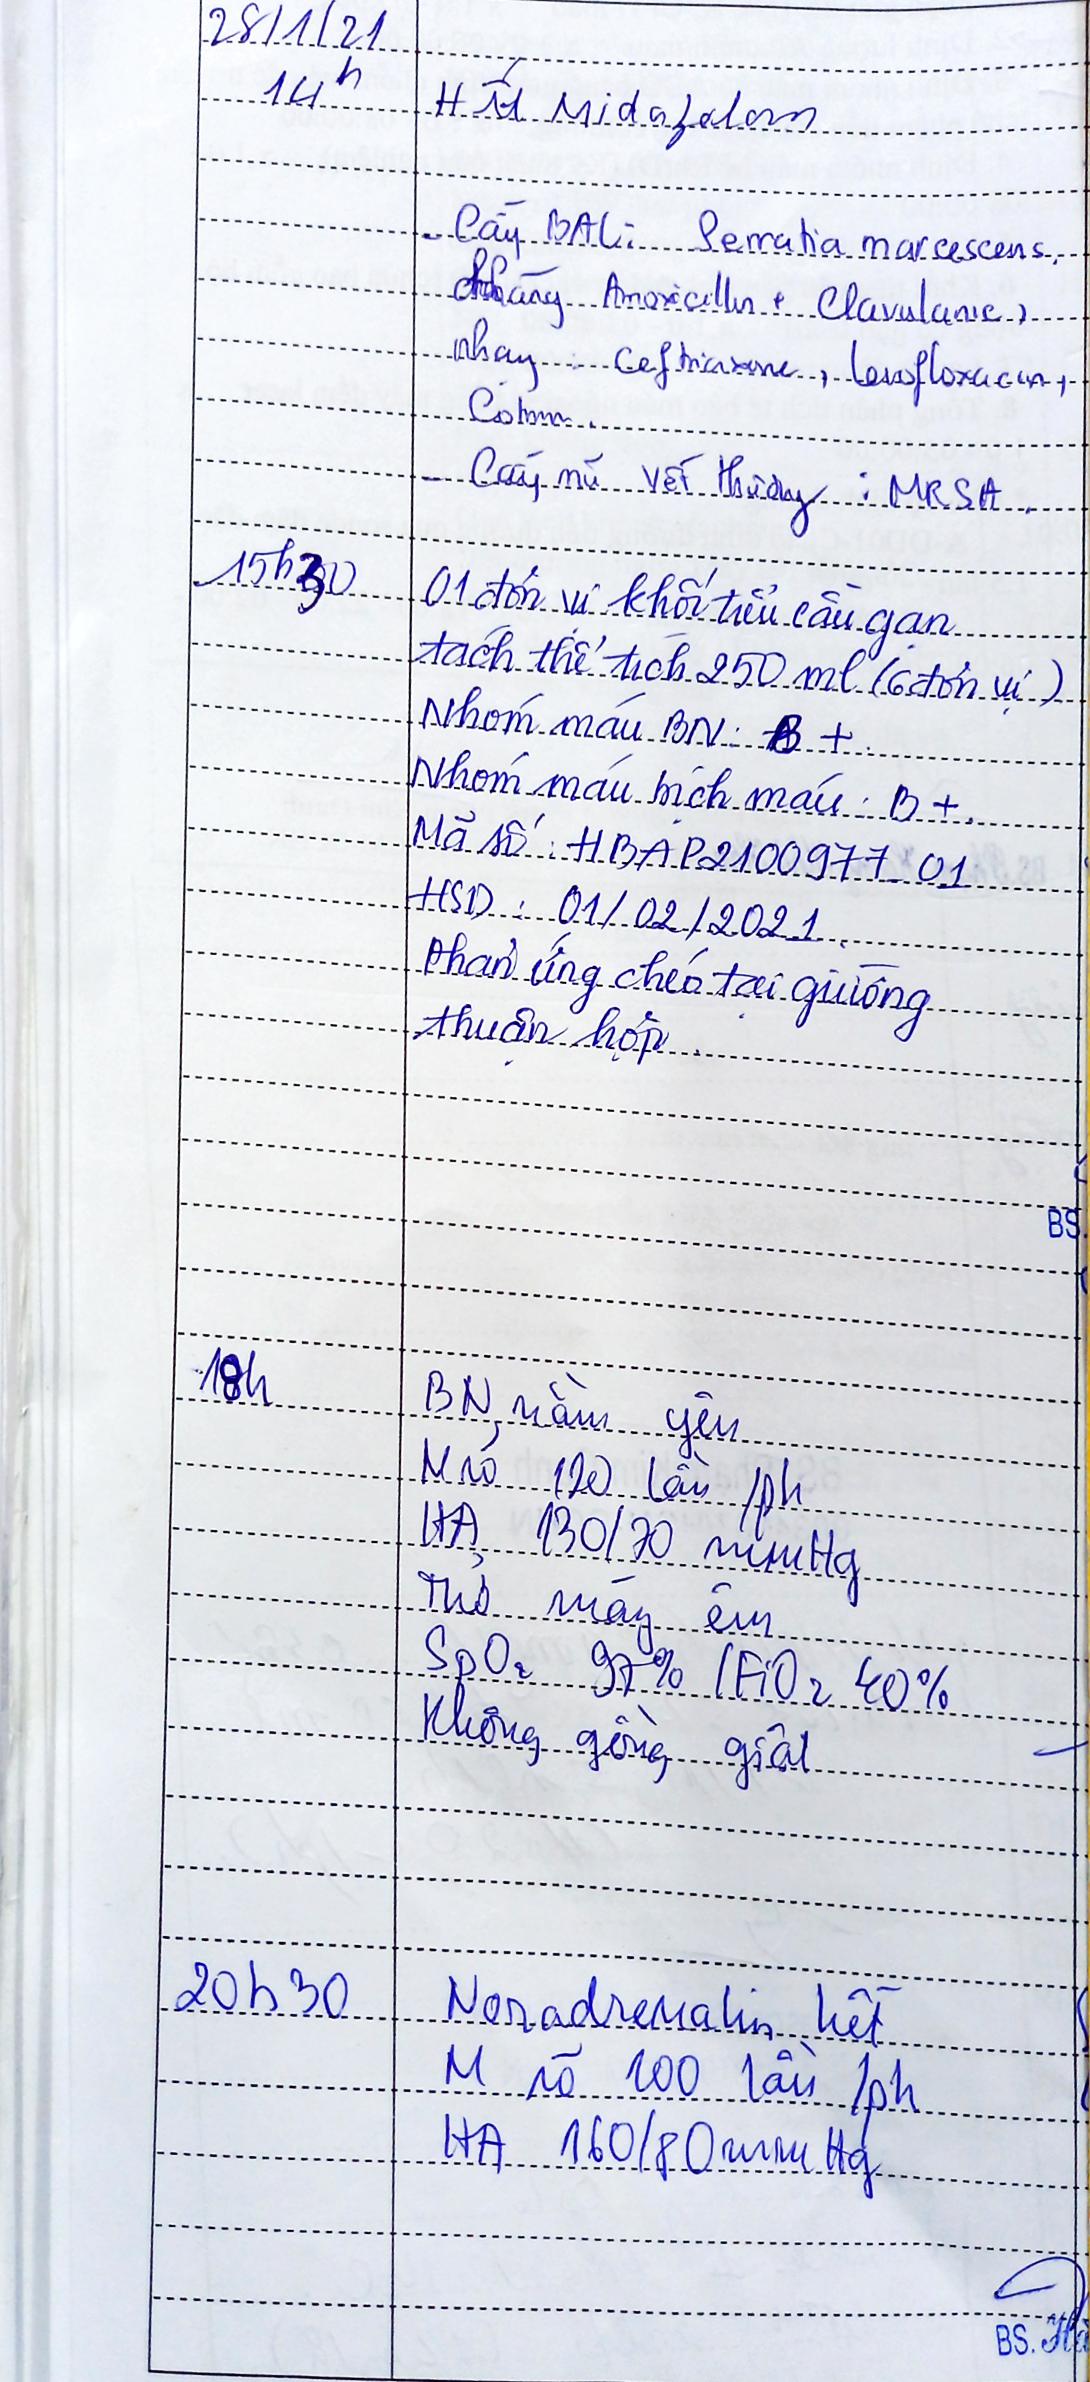 28/1/21
14h Hết Midazolam
- Cấy BAL: Serratia marcescens,
kháng Amoxicillin + Clavulanic,
nhạy: Ceftriaxone, levofloxacin,
- Cấy mủ vết thương: MRSA.
15h30 01 đơn vị khối tiểu cầu gạn
tách thể tích 250 ml (6 đơn vị)
Nhóm máu BN: B+.
Nhóm máu bịch máu: B+.
Mã số: HBAP2100977-01
HSD: 01/02/2021.
Phản ứng chéo tại giường
thuận hợp.
BS.
18h BN nằm yên
M rõ 120 lần/ph
HA 130/70 mmHg
Thở máy êm
SpO2 97% /FiO2 40%
Không gồng giật
20h30 Noradrenalin hết
M rõ 100 lần/ph
HA 160/80 mmHg
BS.